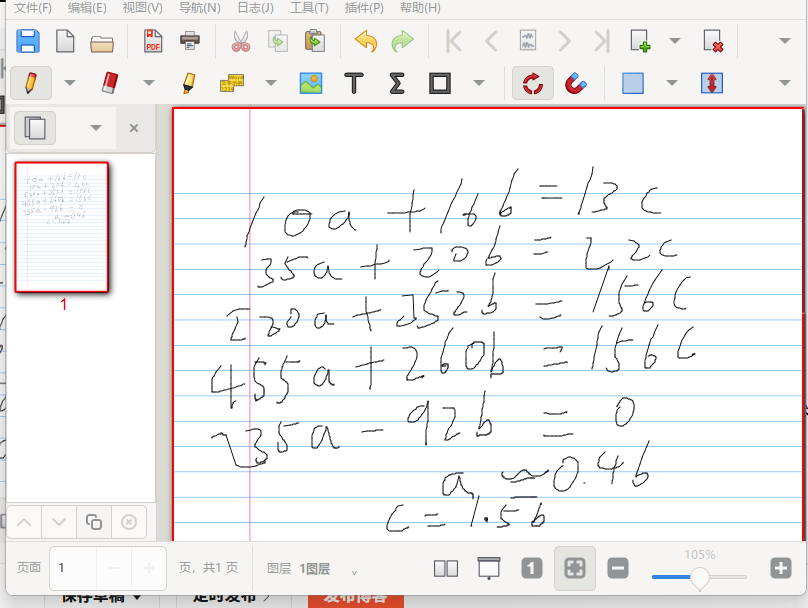 文件(F) 编辑(E) 视图(V) 导航(N) 日志(J) 工具(T) 插件(P) 帮助(H)
PDF
Word
1234
10a+16b=13c
35a+20b=22c
220a+352b=156c
455a+260b=156c
235a-92b=0
a≈0.4b
c=1.5b
1
105%
页面 1 页，共1 页 图层 1图层 1
保存草稿 定时发布 发布博客